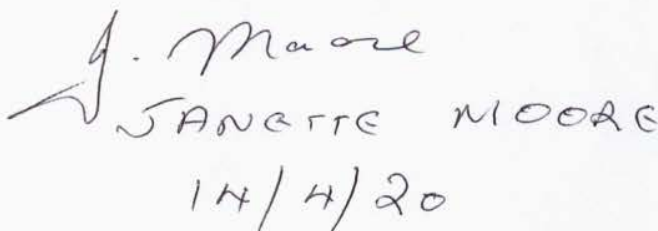 J. Moore
JANETTE MOORE
14/4/20